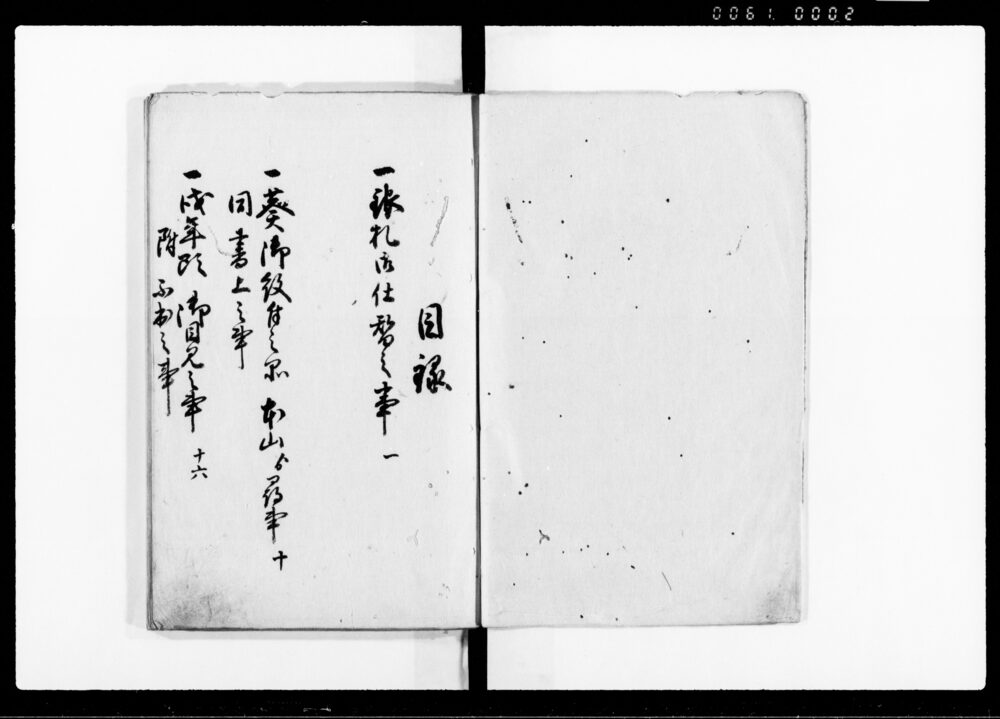 0061. 0002
目録
一張札流仕替之事 一
一葵御紋付之品 本山ゟ尋事 十
同書上之事
一戌年頭 御目見之事 十六
附
之事